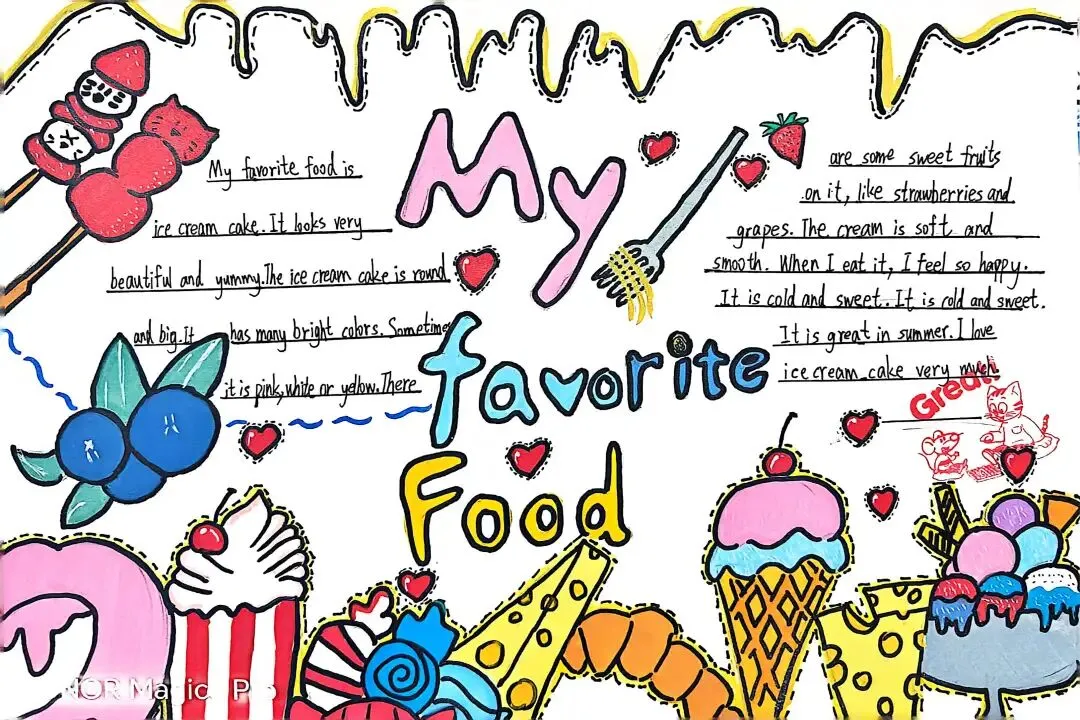 My favorite food is
ice cream cake. It looks very
beautiful and yummy. The ice cream cake is round
and big. It has many bright colors. Sometimes
it is pink, white or yellow. There
My
favorite
Food
are some sweet fruits
on it, like strawberries and
grapes. The cream is soft and
smooth. When I eat it, I feel so happy.
It is cold and sweet. It is cold and sweet.
It is great in summer. I love
ice cream cake very much.
Great!